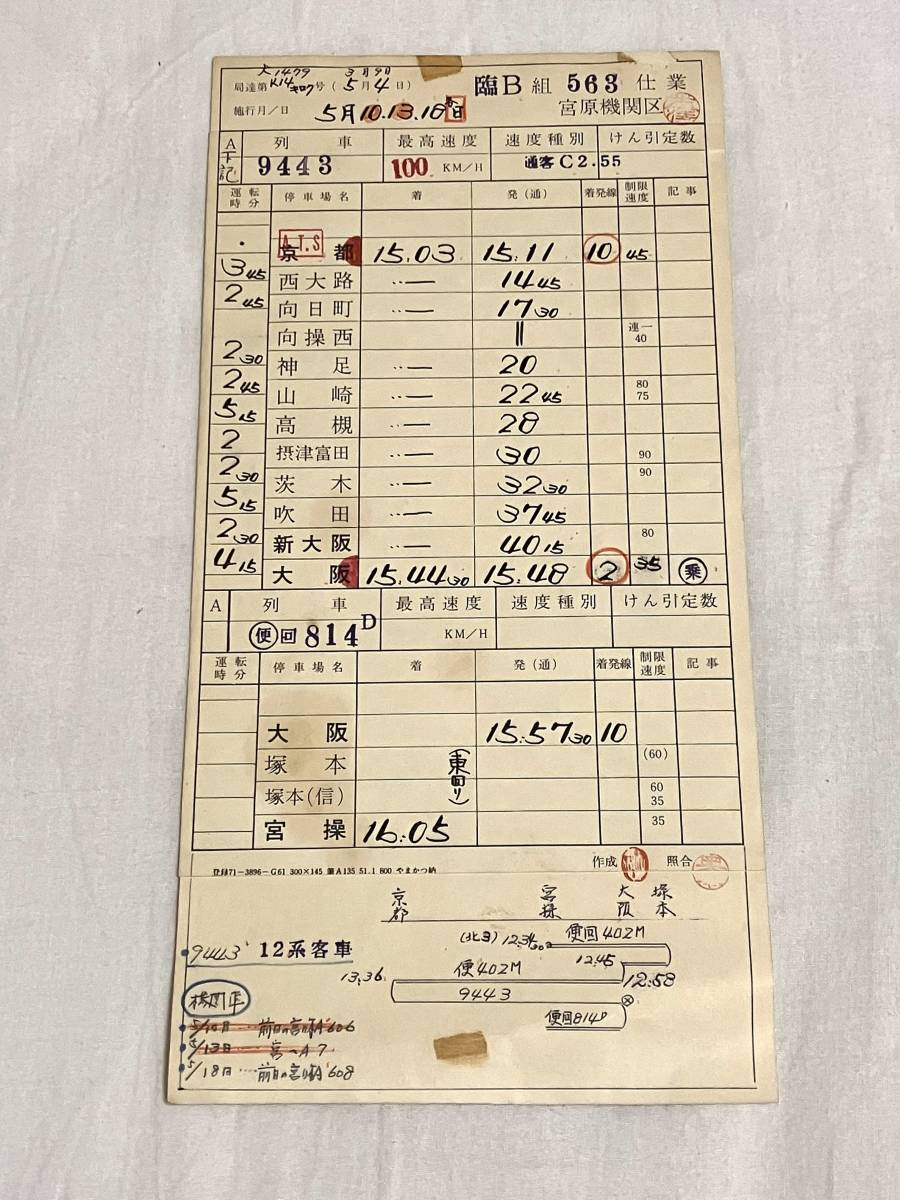 大1479 3月9日
局達第 K14 キロク 号 (5月4日)
臨B 組 563 仕業
施行月/日 5月10.13.18日
宮原機関区
A 列車 最高速度 速度種別 けん引定数
下記 9443 100 KM/H 通客C2.55
運転時分 停車場名 着 発(通) 着発線 制限速度 記事
A.T.S
京都 15.03 15.11 10 45
3 45
西大路 ‥— 14 45
2 45
向日町 ‥— 17 30
向操西 || 連一 40
2 30
神足 ‥— 20
2 45
山崎 ‥— 22 45 80 75
5 15
高槻 ‥— 28
2
摂津富田 ‥— 30 90
2 30
茨木 ‥— 32 30 90
5 15
吹田 ‥— 37 45
2 30
新大阪 ‥— 40 15 80
4 15
大阪 15.44 30 15.48 2 35 乗
A 列車 最高速度 速度種別 けん引定数
便 回 814D KM/H
運転時分 停車場名 着 発(通) 着発線 制限速度 記事
大阪 15:57 30 10
塚本 (60)
(東回り)
塚本(信) 60 35
宮操 16:05 35
作成 照合
登録71-3896-G61 300×145 第A135 51.1 800 やまかつ納
京都 宮操 大阪 塚本
(北ヨ) 12.34 便回402M
9443 12系客車
12:45
13.36 便402M 12:58
9443
機関車
便回814D
5/10日 ‥‥ 前日の宮操A'606
5/13日 ‥‥ 宮〜A7
5/18日 ‥‥ 前日の宮操A'608